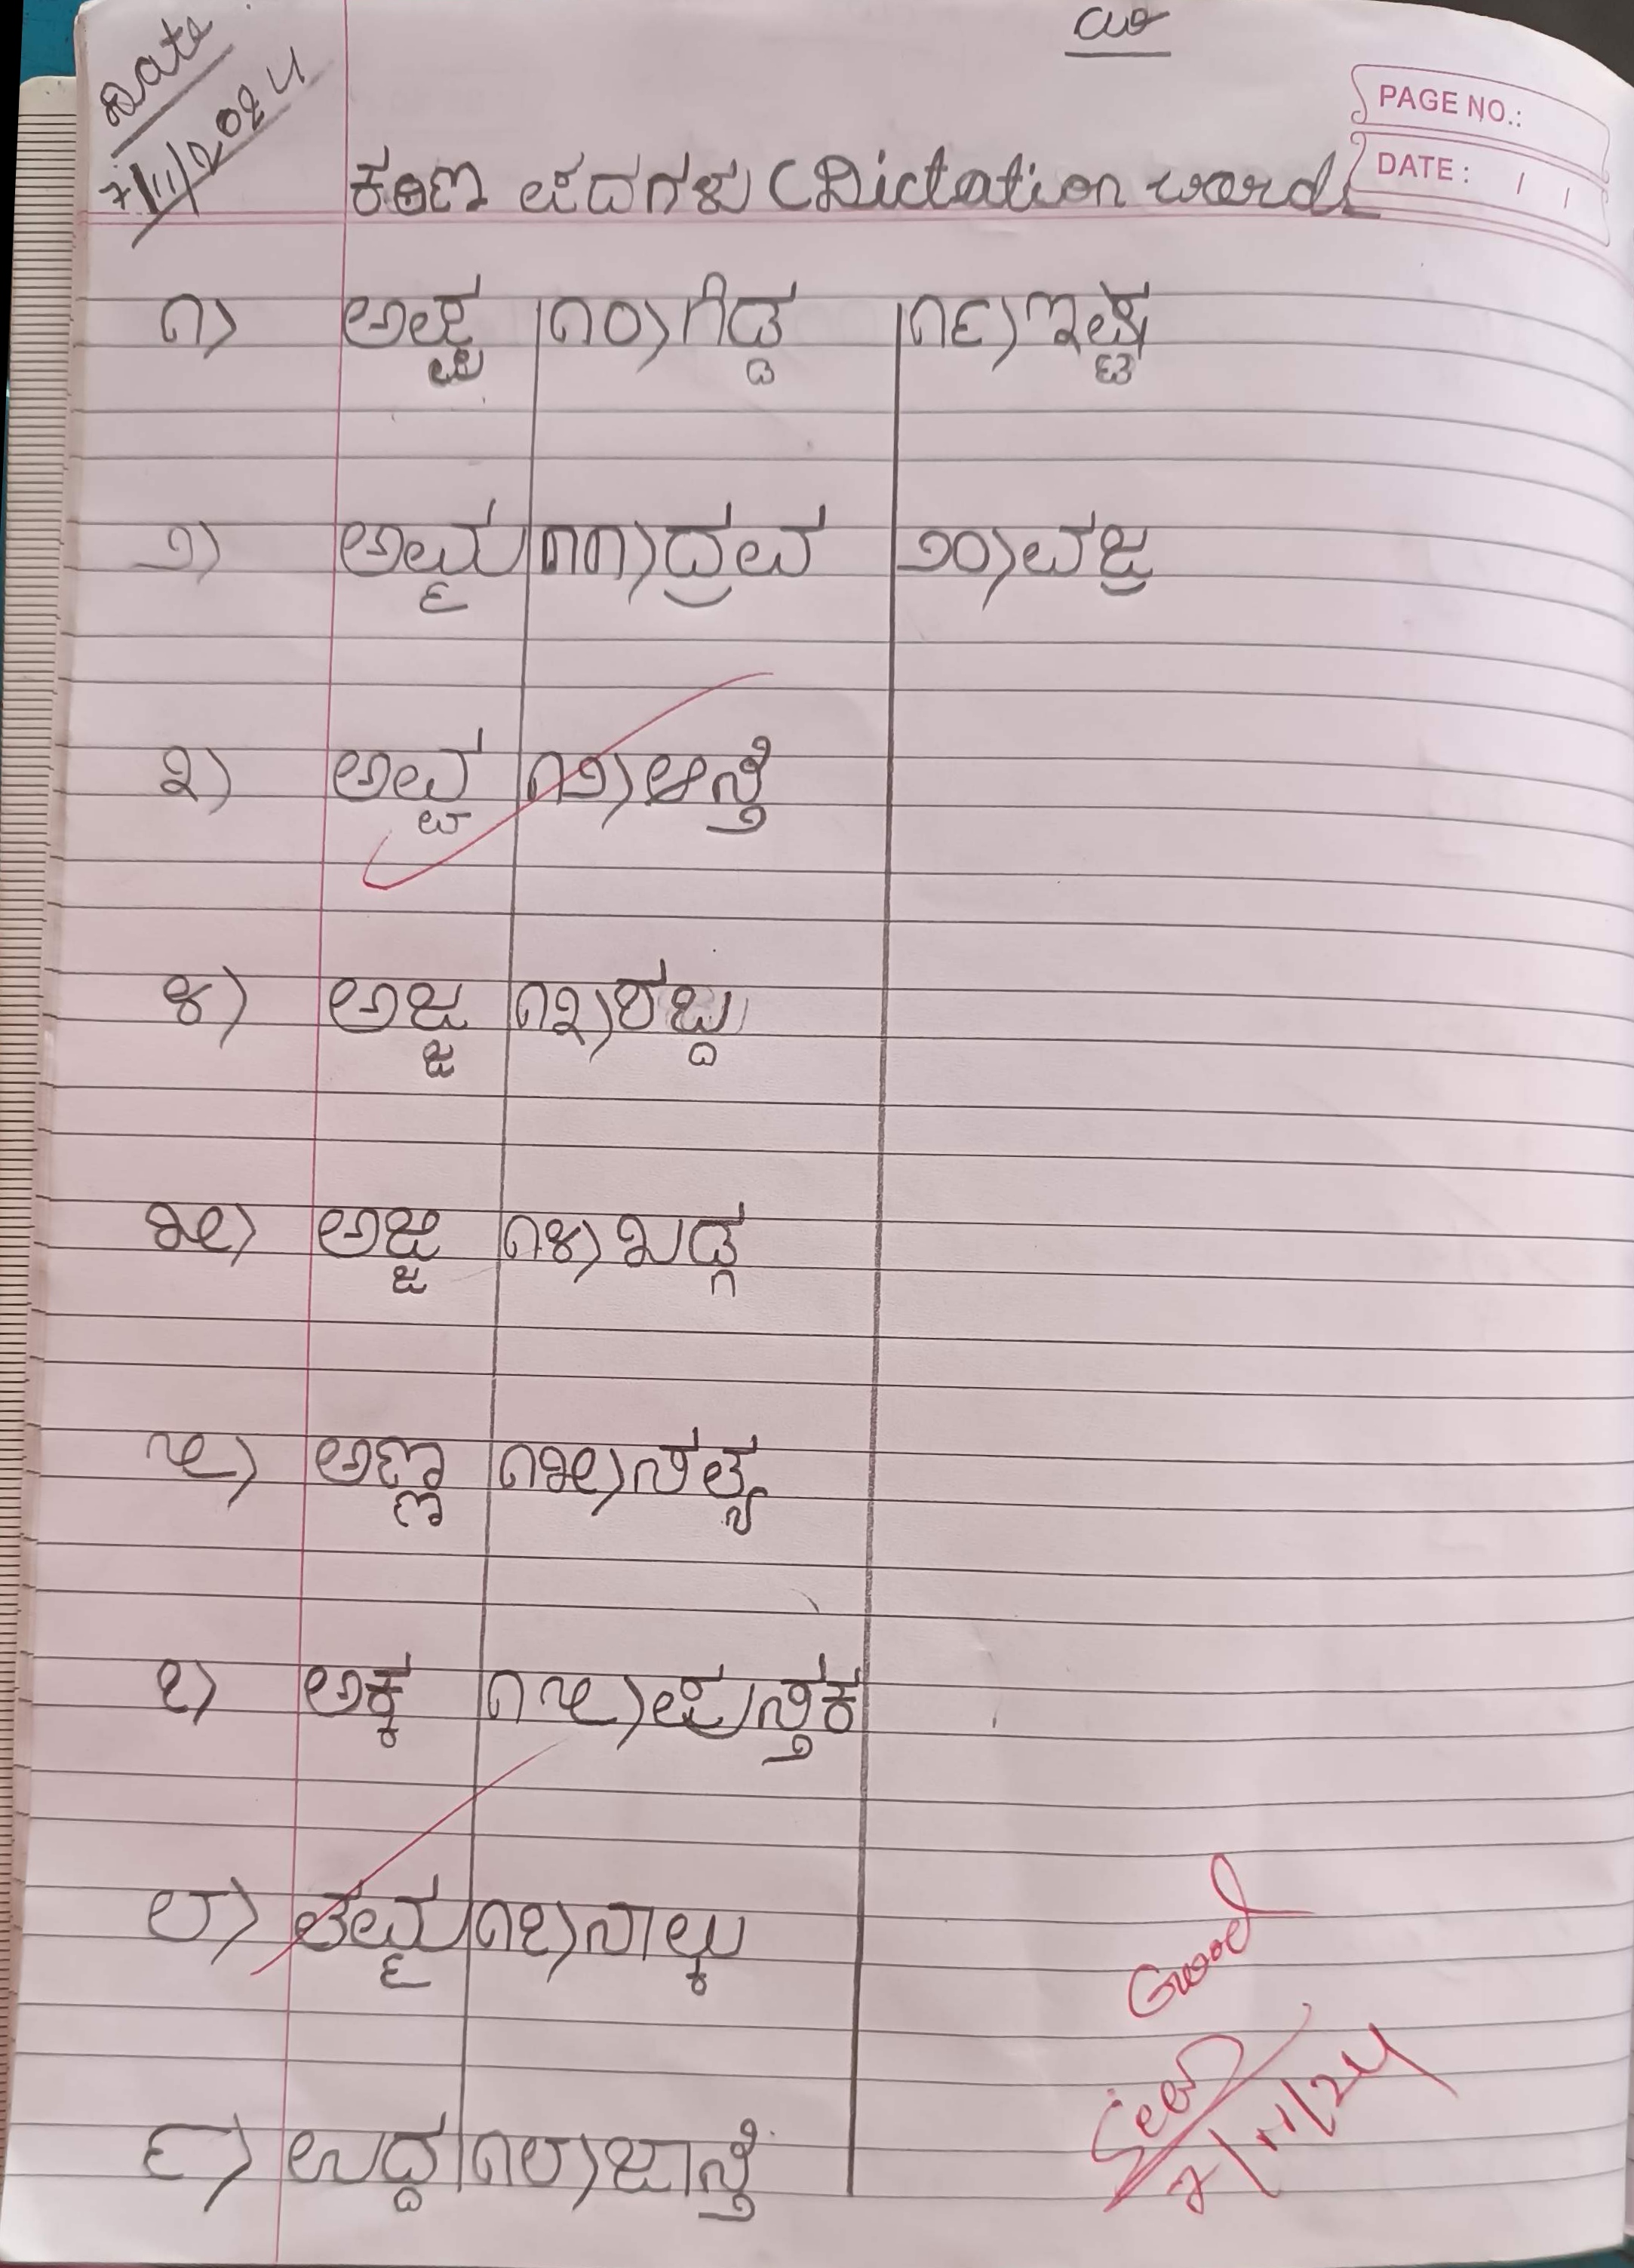 cw
Date
7/11/2024
PAGE NO.:
DATE: / /
ಕಠಿಣ ಪದಗಳು (Dictation words
೧) ಅಪ್ಪ ೧೦) ಗಿಡ್ಡ ೧೯) ಇಷ್ಟ
೨) ಅಮ್ಮ ೧೧) ದ್ರವ ೨೦) ವಜ್ರ
೩) ಅವ್ವ ೧೨) ಆಸ್ತಿ
೪) ಅಜ್ಜ ೧೩) ಶಬ್ದ
೫) ಅಜ್ಜಿ ೧೪) ಖಡ್ಗ
೬) ಅಣ್ಣ ೧೫) ಸತ್ಯ
೭) ಅಕ್ಕ ೧೬) ಪುಸ್ತಕ
೮) ತಮ್ಮ ೧೭) ನಾಲ್ಕು
೯) ಉದ್ದ ೧೮) ಜಾಸ್ತಿ
Good
Seen
7/11/24